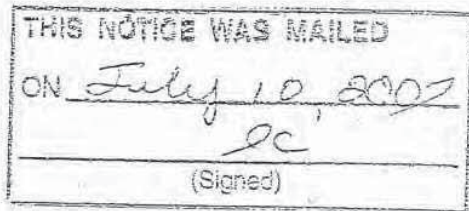 THIS NOTICE WAS MAILED
ON July 10, 2007
(Signed)